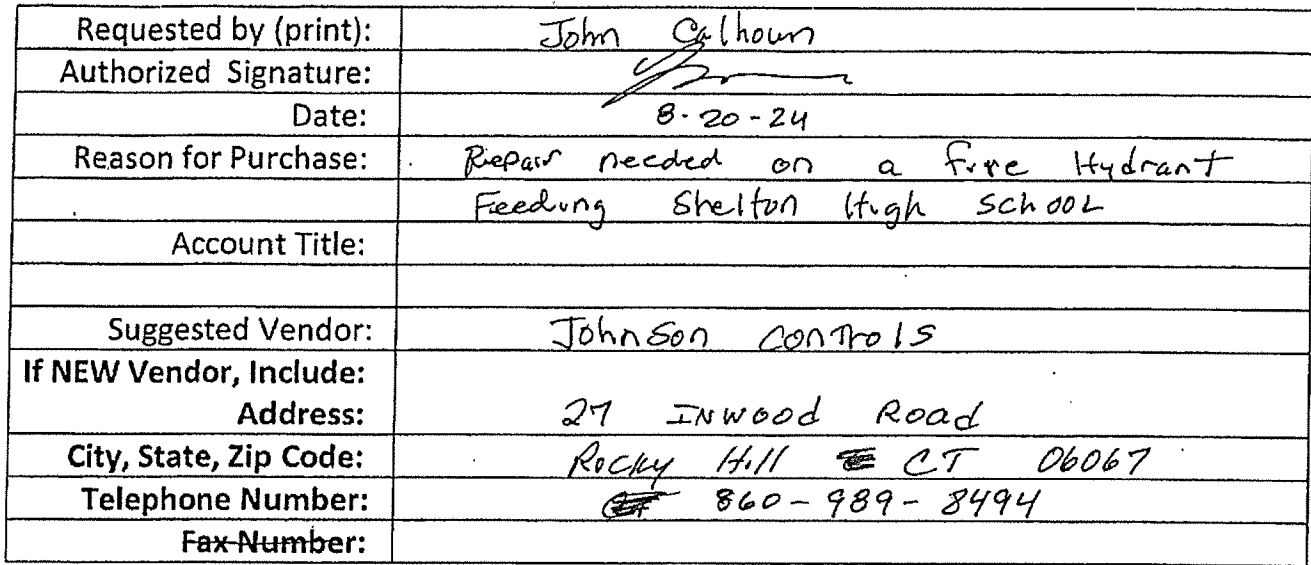 Requested by (print): John Calhoun
Authorized Signature:
Date: 8-20-24
Reason for Purchase: Repair needed on a fire Hydrant
Feeding Shelton High SCHOOL
Account Title:
Suggested Vendor: Johnson Controls
If NEW Vendor, Include:
Address: 27 INWOOD Road
City, State, Zip Code: Rocky Hill CT 06067
Telephone Number: 860-989-8494
Fax Number: